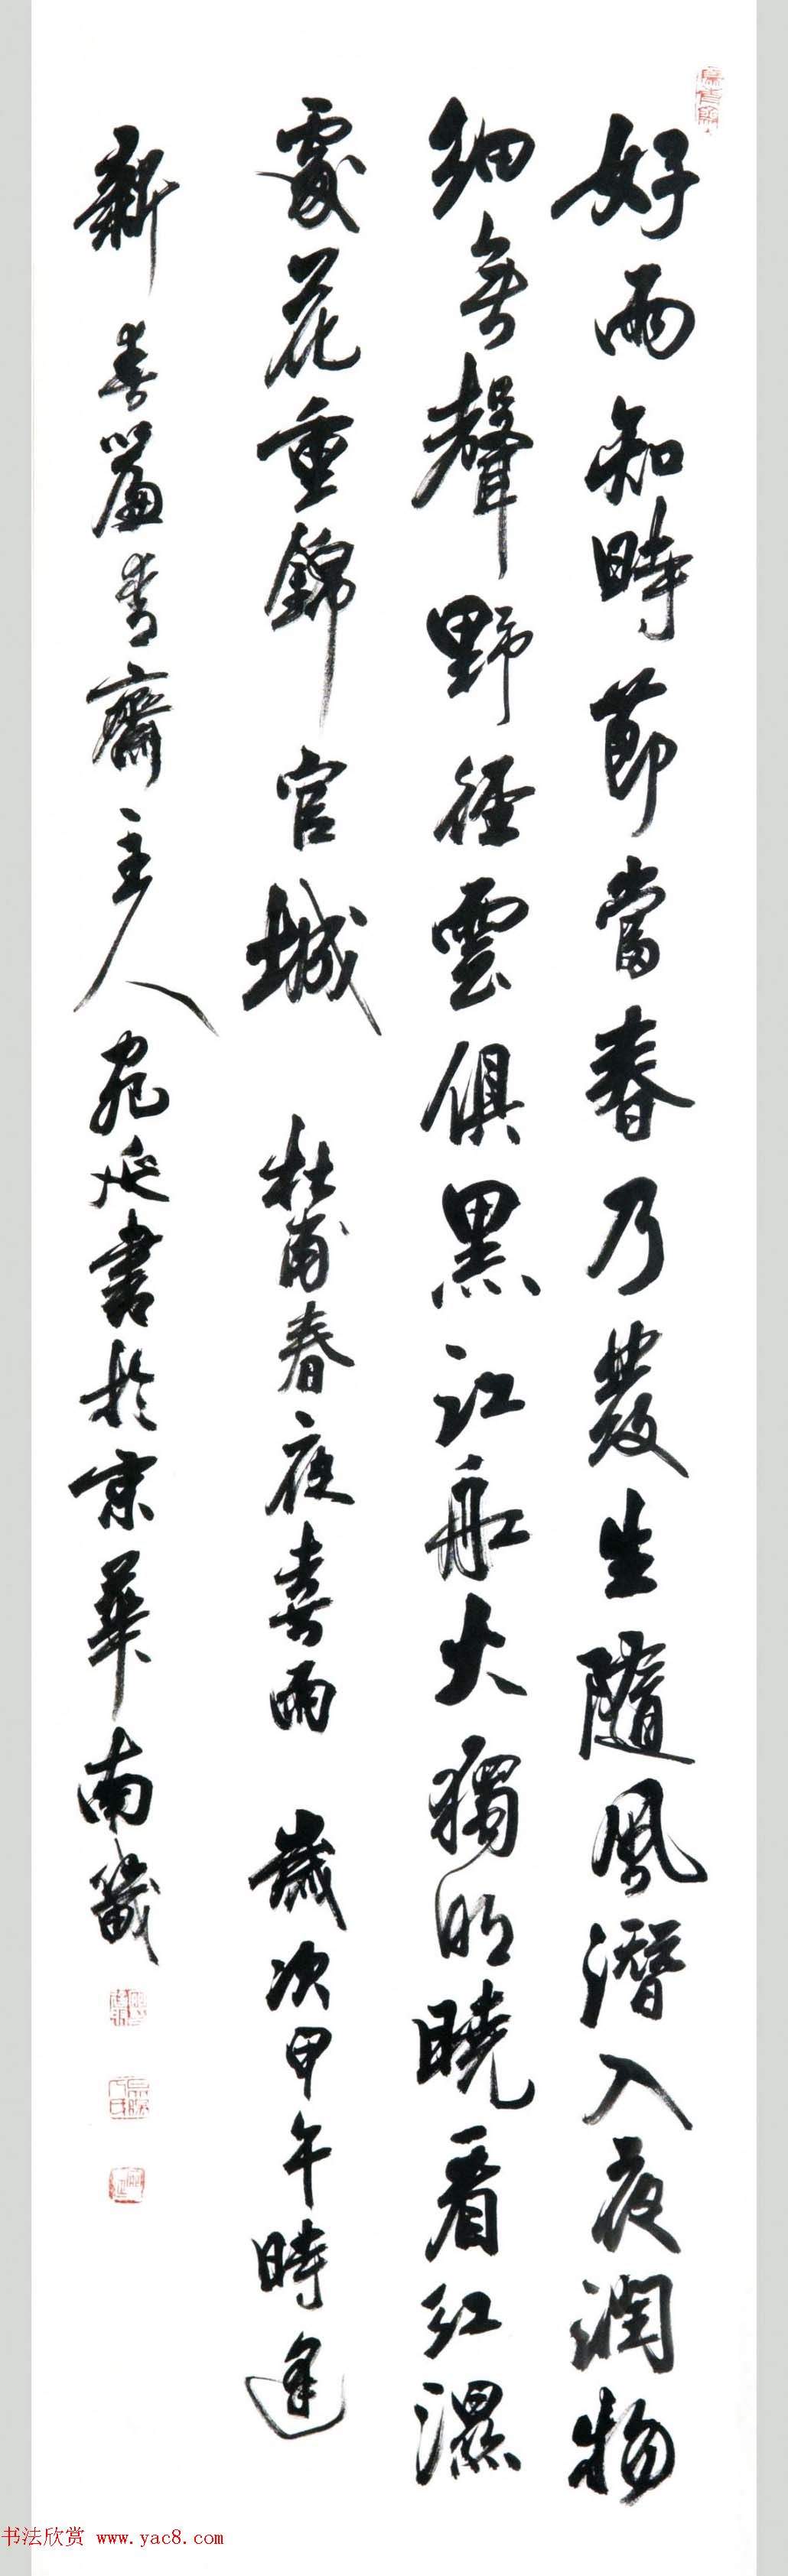 好雨知時節當春乃發生隨風潛入夜潤物
細無聲野徑雲俱黑江船火獨明曉看紅濕
處花重錦官城 杜甫春夜喜雨 歲次甲午時逢
新春簾青齋主人宛延書於京華南畿
书法欣赏 www.yac8.com